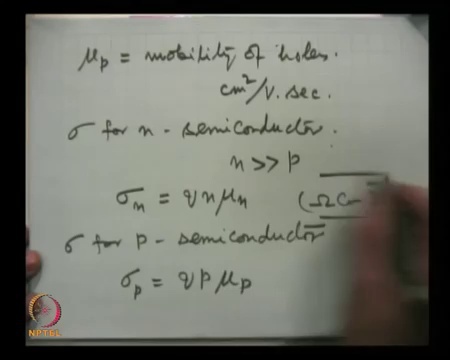 μp = mobility of holes.
cm²/V. sec.
σ for n - semiconductor.
n >> p
σn = qnμn (Ω Cm
σ for p - semiconductor
σp = qpμp
NPTEL